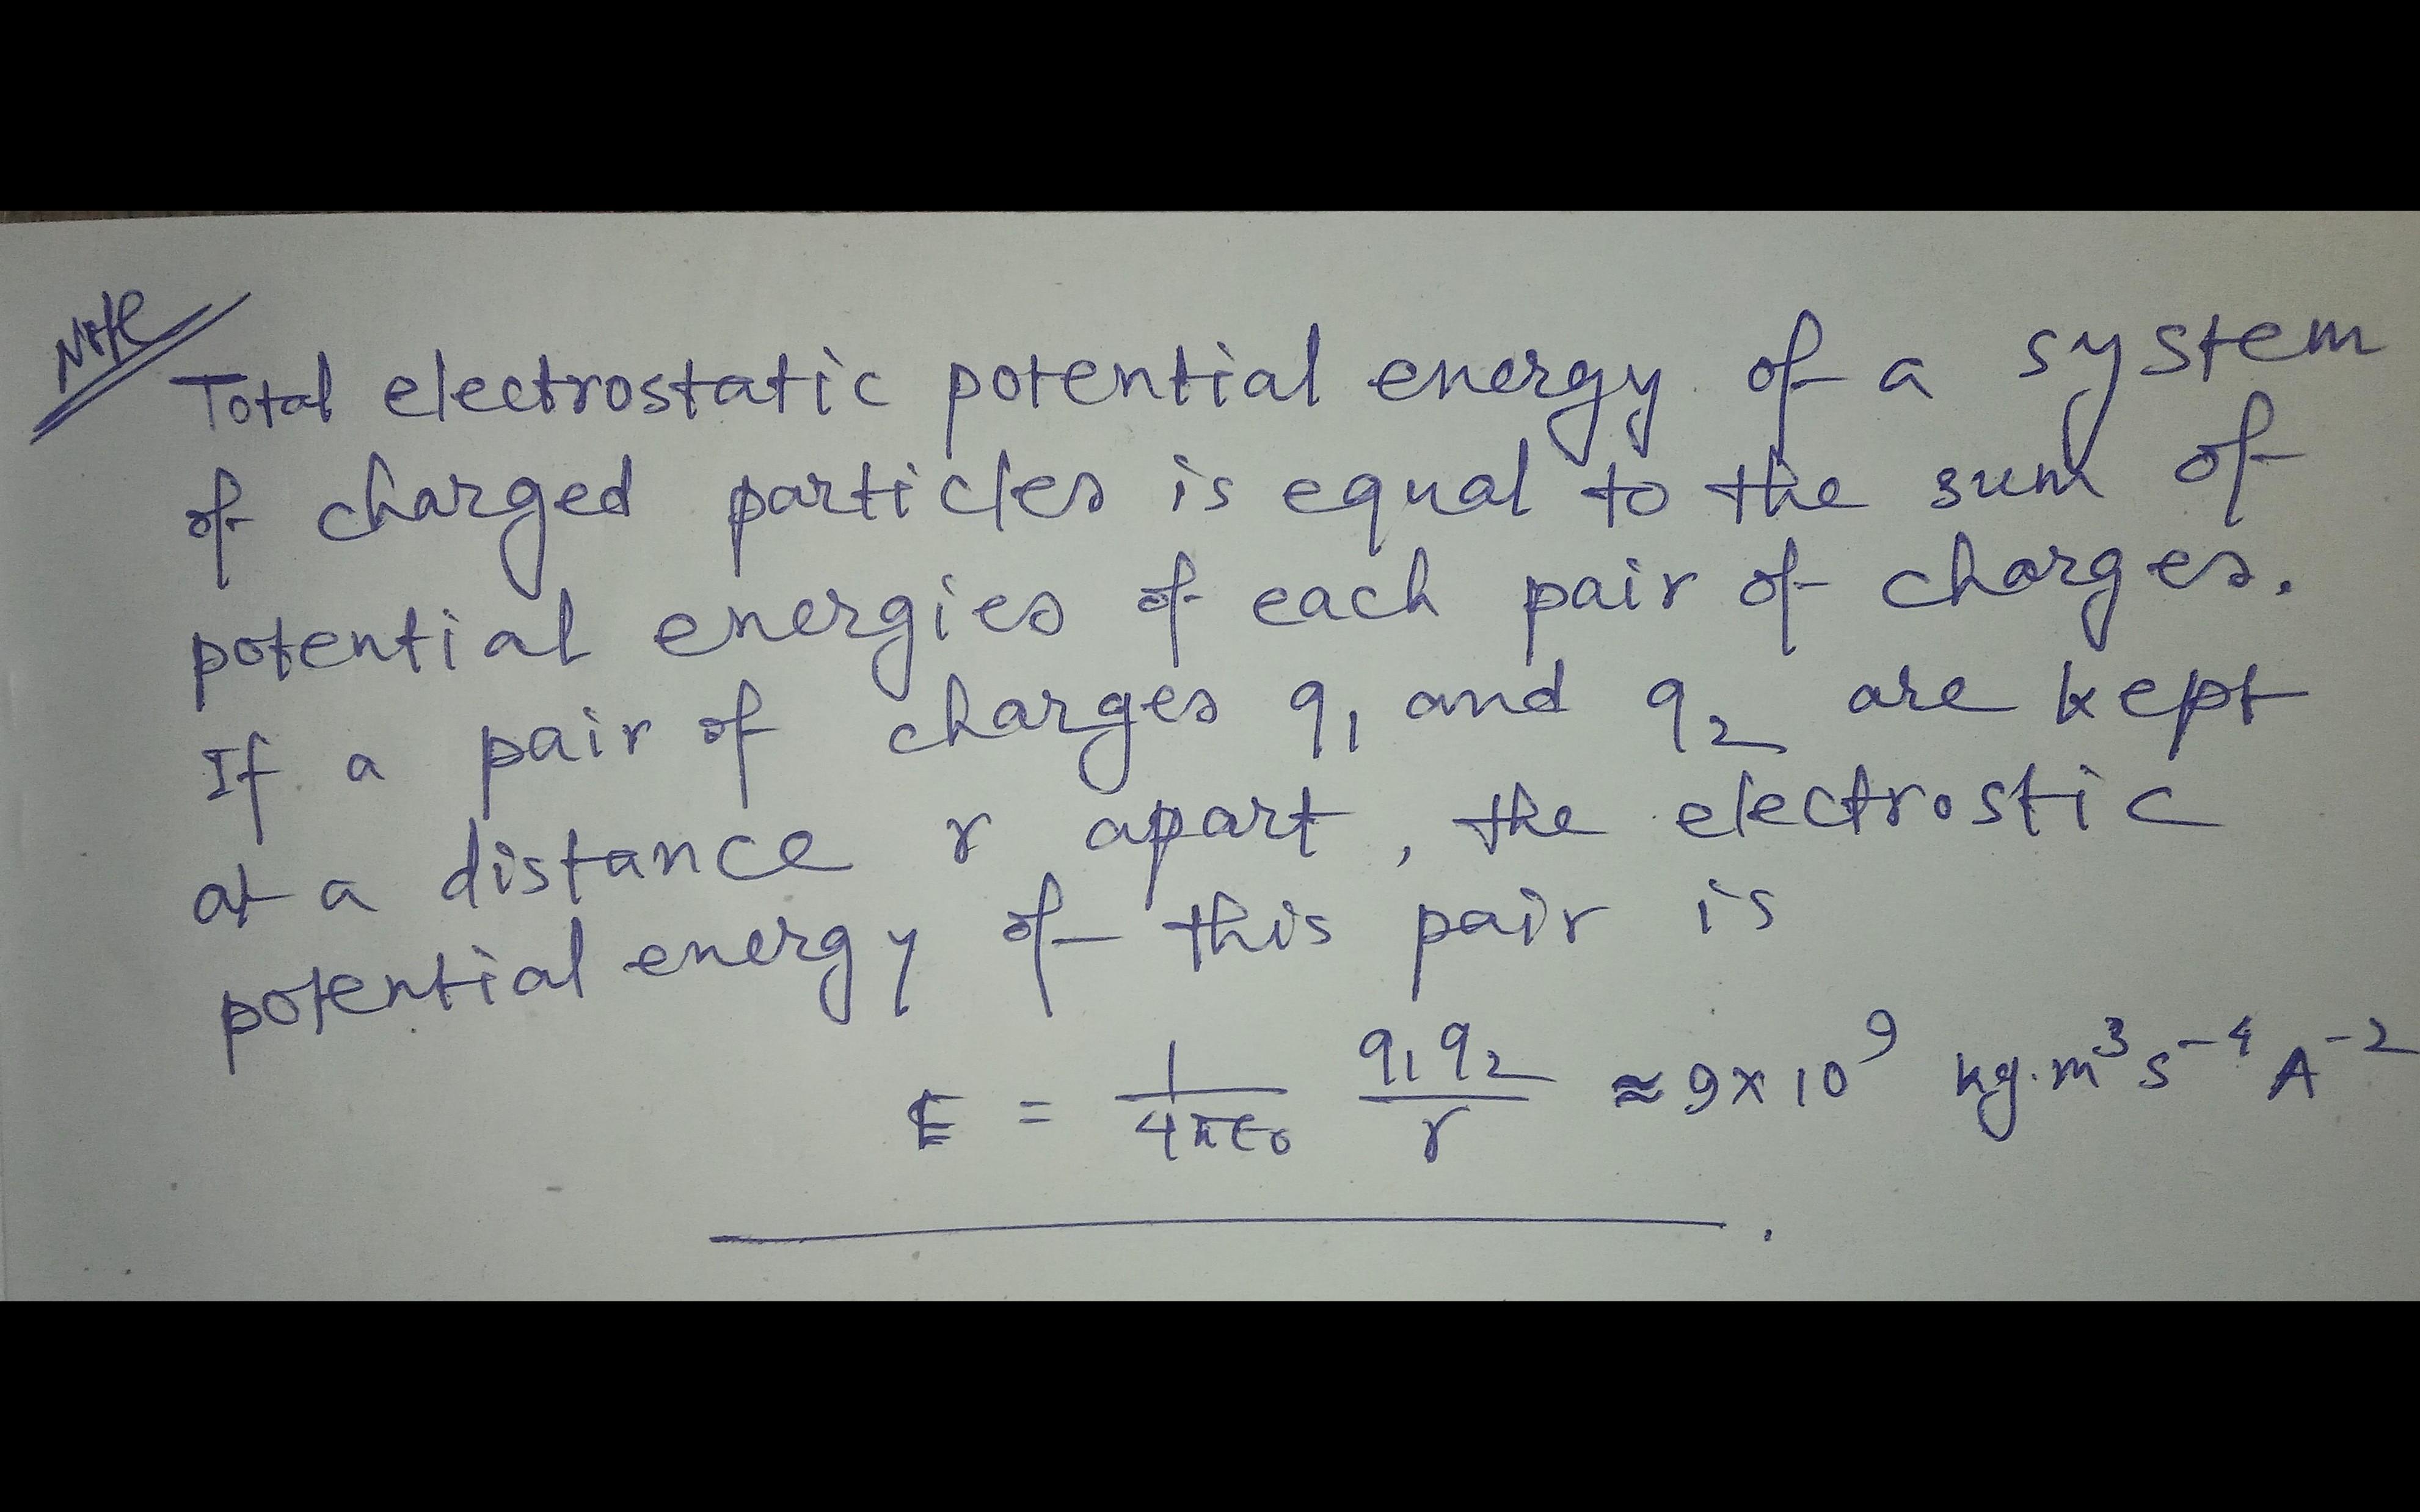 Note
Total electrostatic potential energy of a system
of charged particles is equal to the sum of
potential energies of each pair of charges.
If a pair of charges q₁ and q₂ are kept
at a distance r apart, the electrostic
potential energy of this pair is
E = 1/4πε₀ q₁q₂/r ≈ 9×10⁹ kg.m³s⁻⁴A⁻²